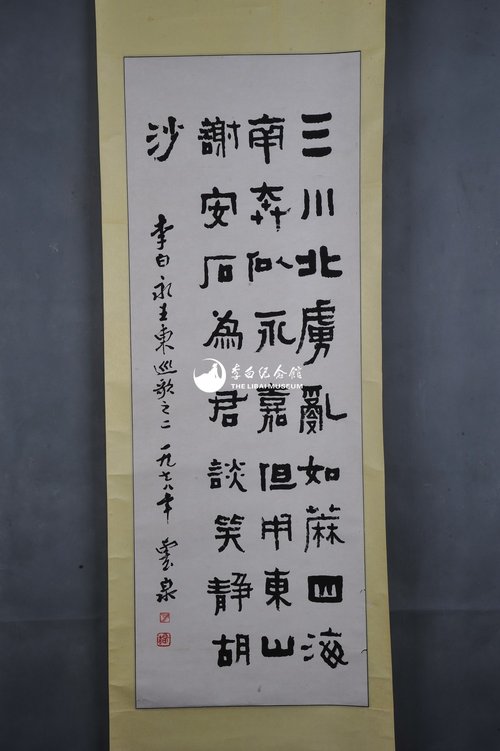 三川北虏亂如蔴四海
南奔似永嘉但用東山
謝安石為君談笑静胡
沙
李白永王東巡歌之二 一九七八年 雲泉
李白纪念馆
THE LIBAI MUSEUM